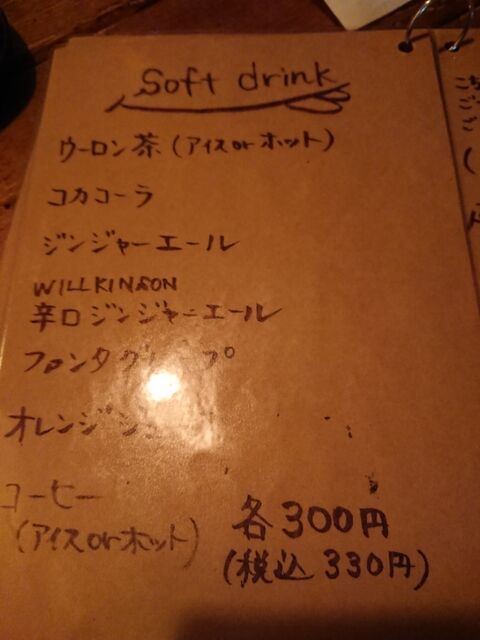 Soft drink
ウーロン茶(アイスorホット)
コカコーラ
ジンジャーエール
WILLKINSON
辛口ジンジャーエール
オレンジ
コーヒー
(アイスorホット)
各300円
(税込 330円)